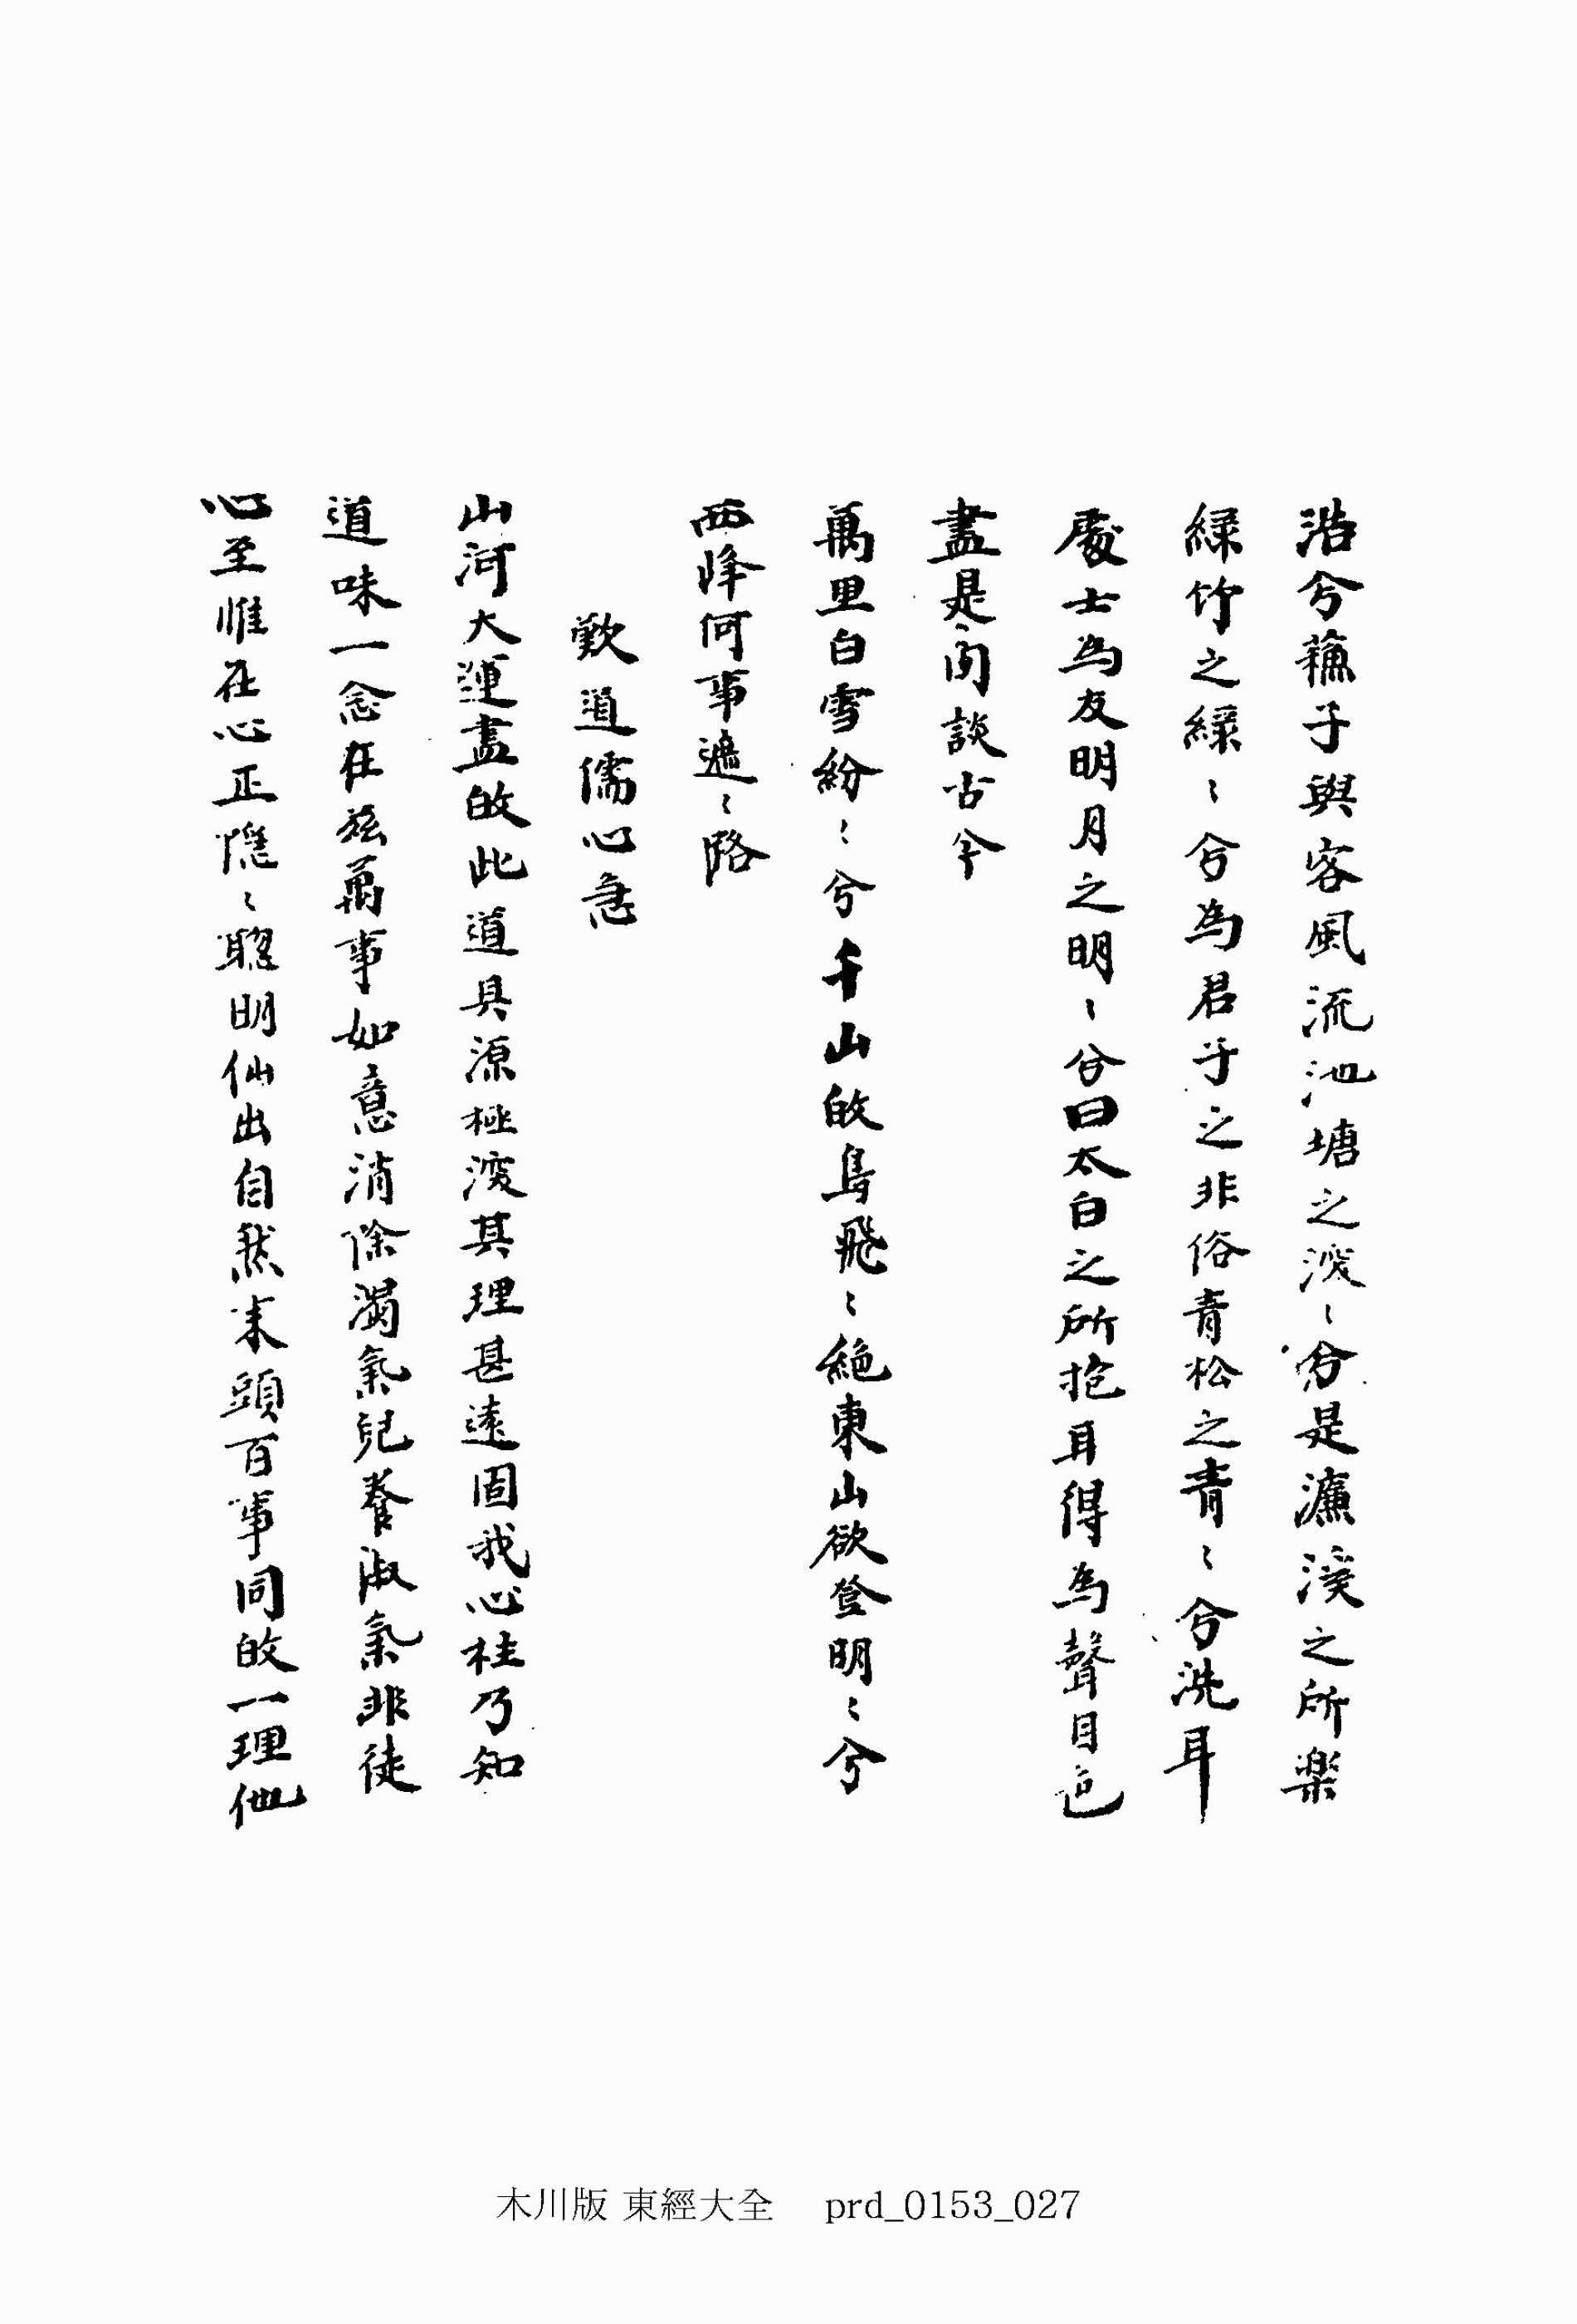 浩兮蘓子與客風流池塘之深〻兮是濂溪之所樂
綠竹之綠〻兮為君子之非俗青松之青〻兮洗耳
處士為友明月之明〻兮曰太白之所抱耳得為聲目色
盡是閑談古今
萬里白雪紛〻兮千山皈鳥飛〻絶東山欲登明〻兮
西峰何事遮〻路
歎道儒心急
山河大運盡皈此道其源極深其理甚遠固我心柱乃知
道味一念在兹萬事如意消除濁氣兒養淑氣非徒
心至惟在心正隱〻聰明仙出自然来頭百事同皈一理他
木川版 東經大全 prd_0153_027